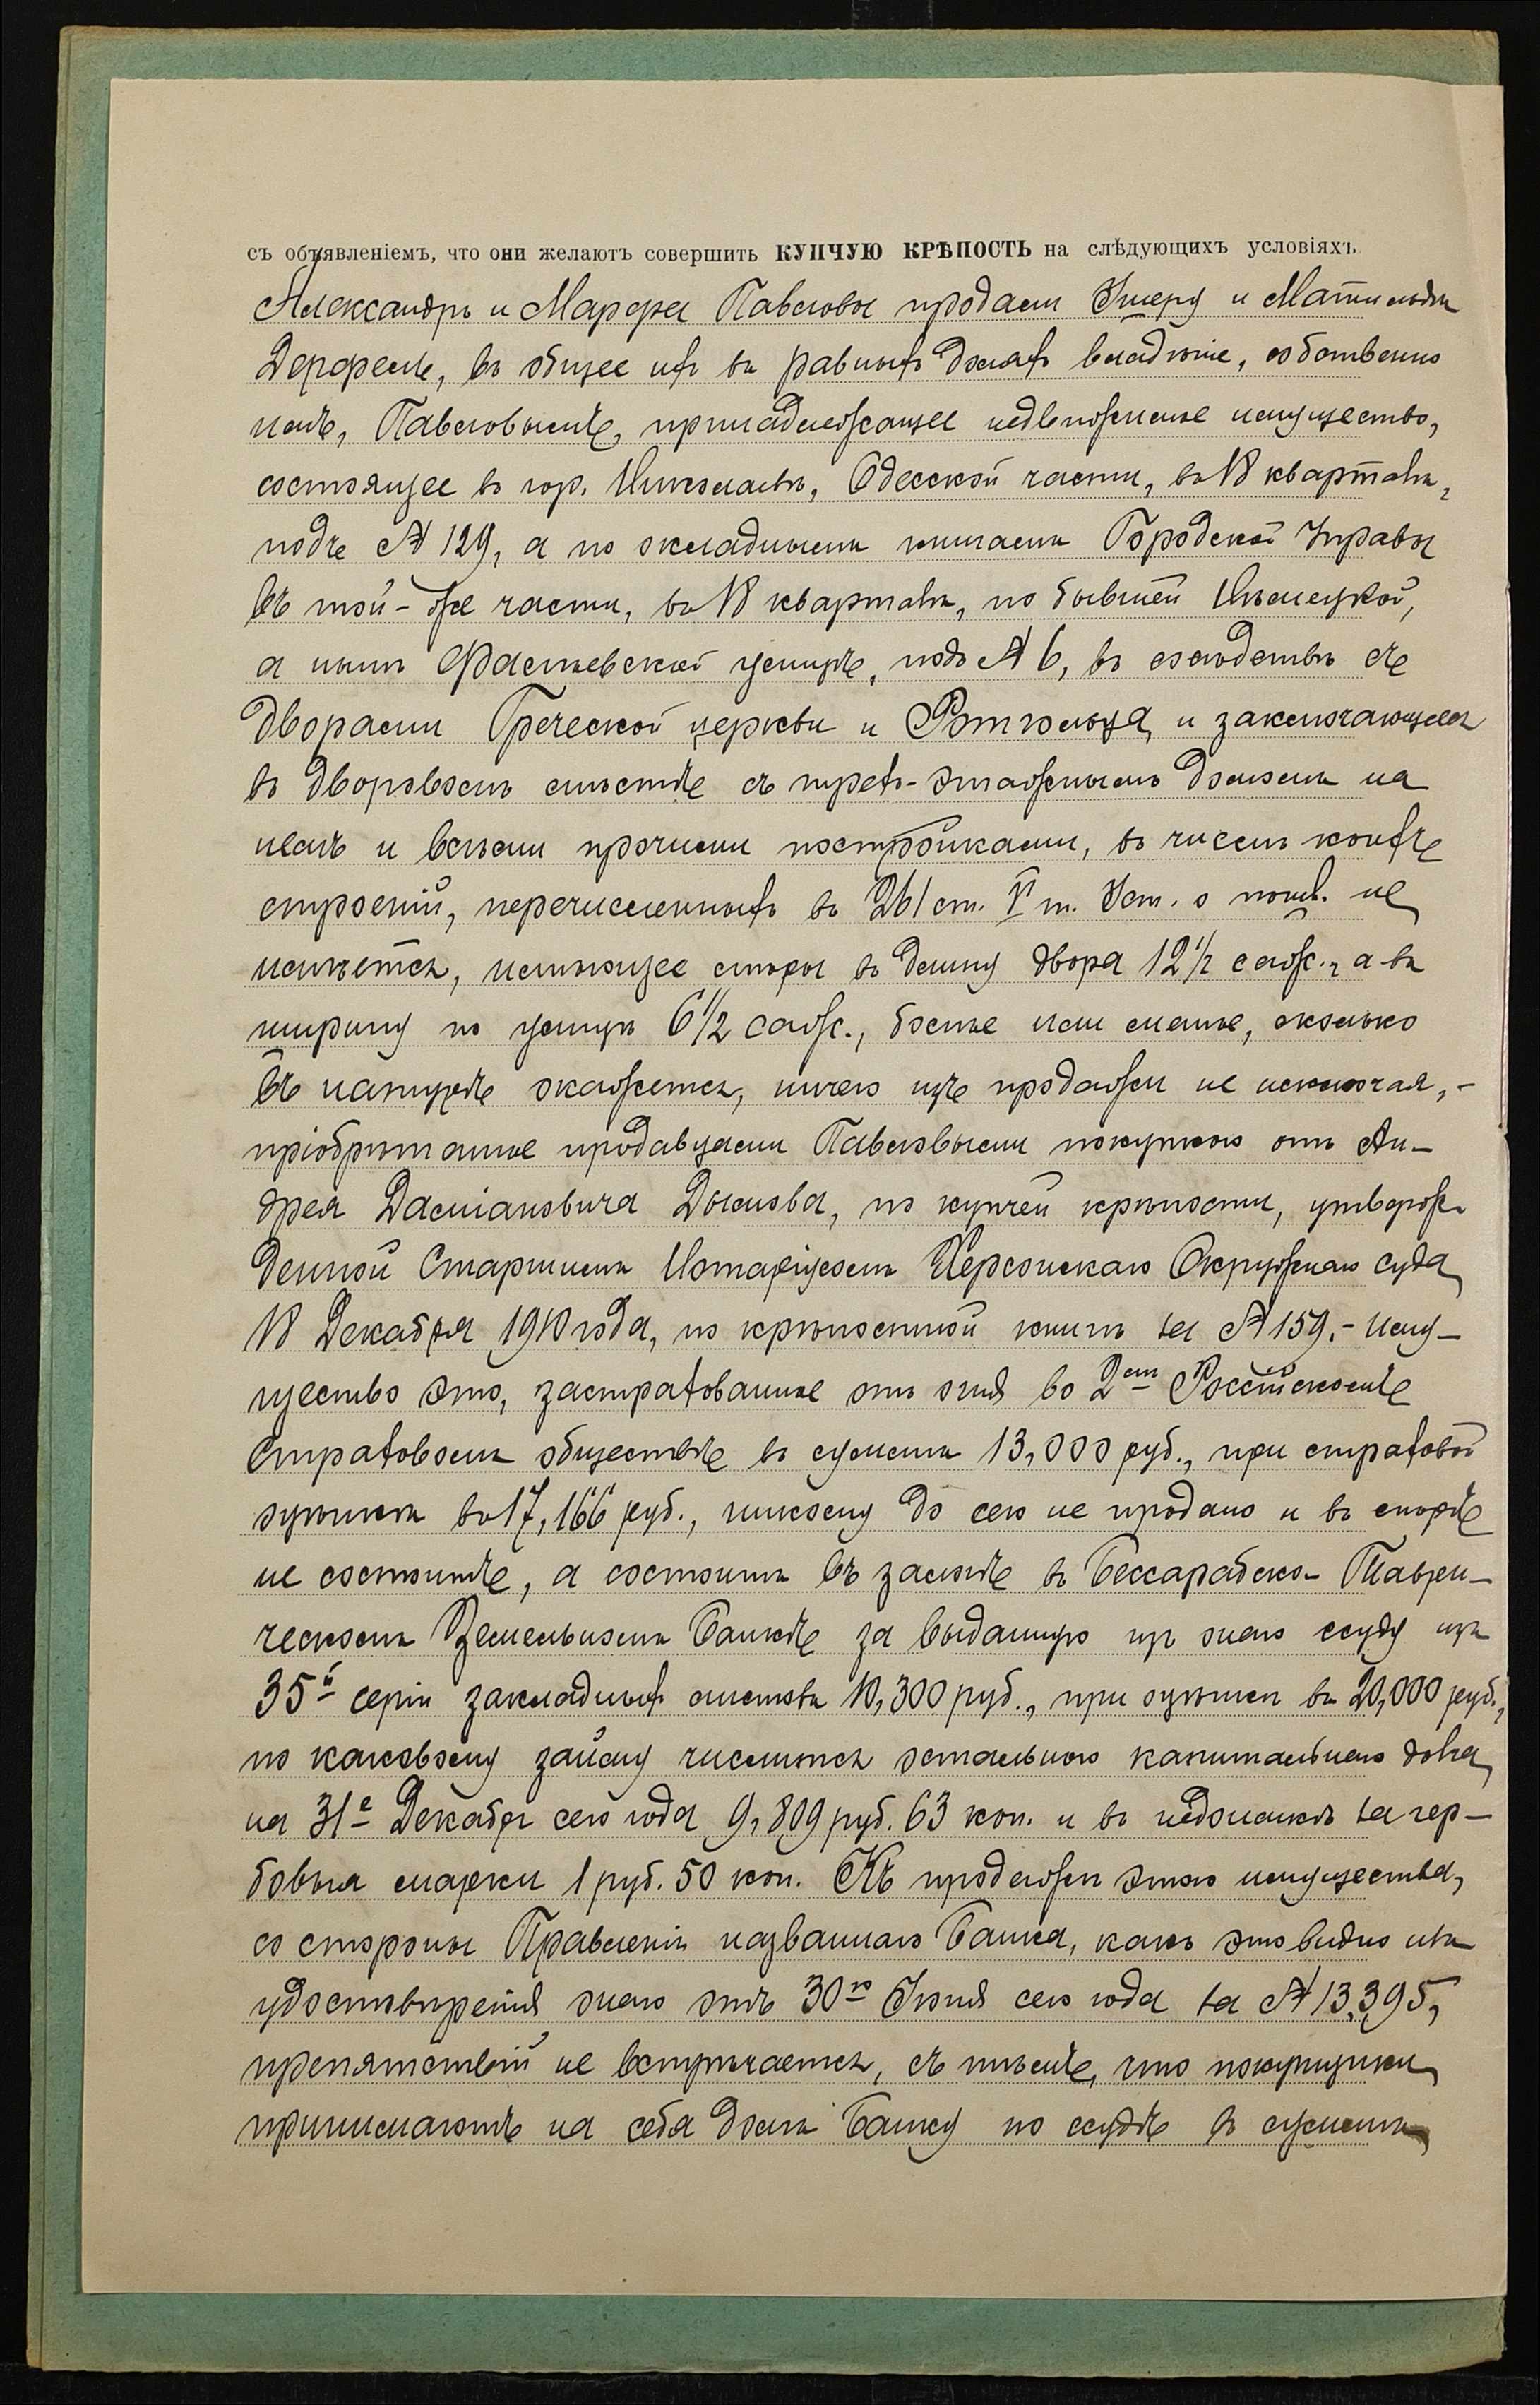 съ объявленіемъ, что они желаютъ совершить КУПЧУЮ КРѢПОСТЬ на слѣдующихъ условіяхъ
Александръ и Марфа Павловы продали Умеру и Матильдѣ
Дерфель, въ общее ихъ въ равныхъ доляхъ владѣніе, собственно
имъ, Павловымъ, принадлежащее недвижимое имущество,
состоящее въ гор. Николаевѣ, Одесской части, въ 18 кварталѣ,
подъ № 129, а по окладнымъ книгамъ Городской Управы
въ той-же части, въ 18 кварталѣ, по бывшей Нѣмецкой,
а нынѣ Фалѣевской улицѣ, подъ № 6, въ сосѣдствѣ съ
дворами Греческой церкви и Ротгольца, и заключающееся
въ дворовомъ мѣстѣ съ трехъ-этажнымъ домомъ на
немъ и всѣми прочими постройками, въ числѣ коихъ
строеній, перечисленныхъ въ 261 ст. V т. Уст. о пошл. не
имѣется, имѣющее мѣры въ длину двора 12 1/2 саж., а въ
ширину по улицѣ 6 1/2 саж., болѣе или менѣе, сколько
въ натурѣ окажется, ничего изъ продажи не исключая,-
пріобрѣтенное продавцами Павловыми покупкою отъ Ан-
дрея Даміановича Дымова, по купчей крѣпости, утверж-
денной Старшимъ Нотаріусомъ Херсонскаго Окружнаго суда
18 Декабря 1910 года, по крѣпостной книгѣ за № 159.- Иму-
щество это, застрахованное отъ огня во 2омъ Россійскомъ
Страховомъ обществѣ въ суммѣ 13,000 руб., при страховой
оцѣнкѣ въ 17,166 руб., никому до сего не продано и въ спорѣ
не состоитъ, а состоитъ въ залогѣ въ Бессарабско-Таври-
ческомъ Земельномъ Банкѣ за выданную изъ онаго ссуду изъ
35й серіи закладныхъ листовъ 10,300 руб., при оцѣнкѣ въ 20,000 руб.,
по каковому займу числится остального капитальнаго долга,
на 31е Декабря сего года 9,809 руб. 63 коп. и въ недоимкѣ за гер-
бовыя марки 1 руб. 50 коп. Къ продажѣ этого имущества,
со стороны Правленія названнаго Банка, какъ это видно изъ
удостовѣренія онаго отъ 30го Іюня сего года за № 13,395,
препятствій не встрѣчается, съ тѣмъ, что покупщики
принимаютъ на себя долгъ Банку по ссудѣ въ суммѣ